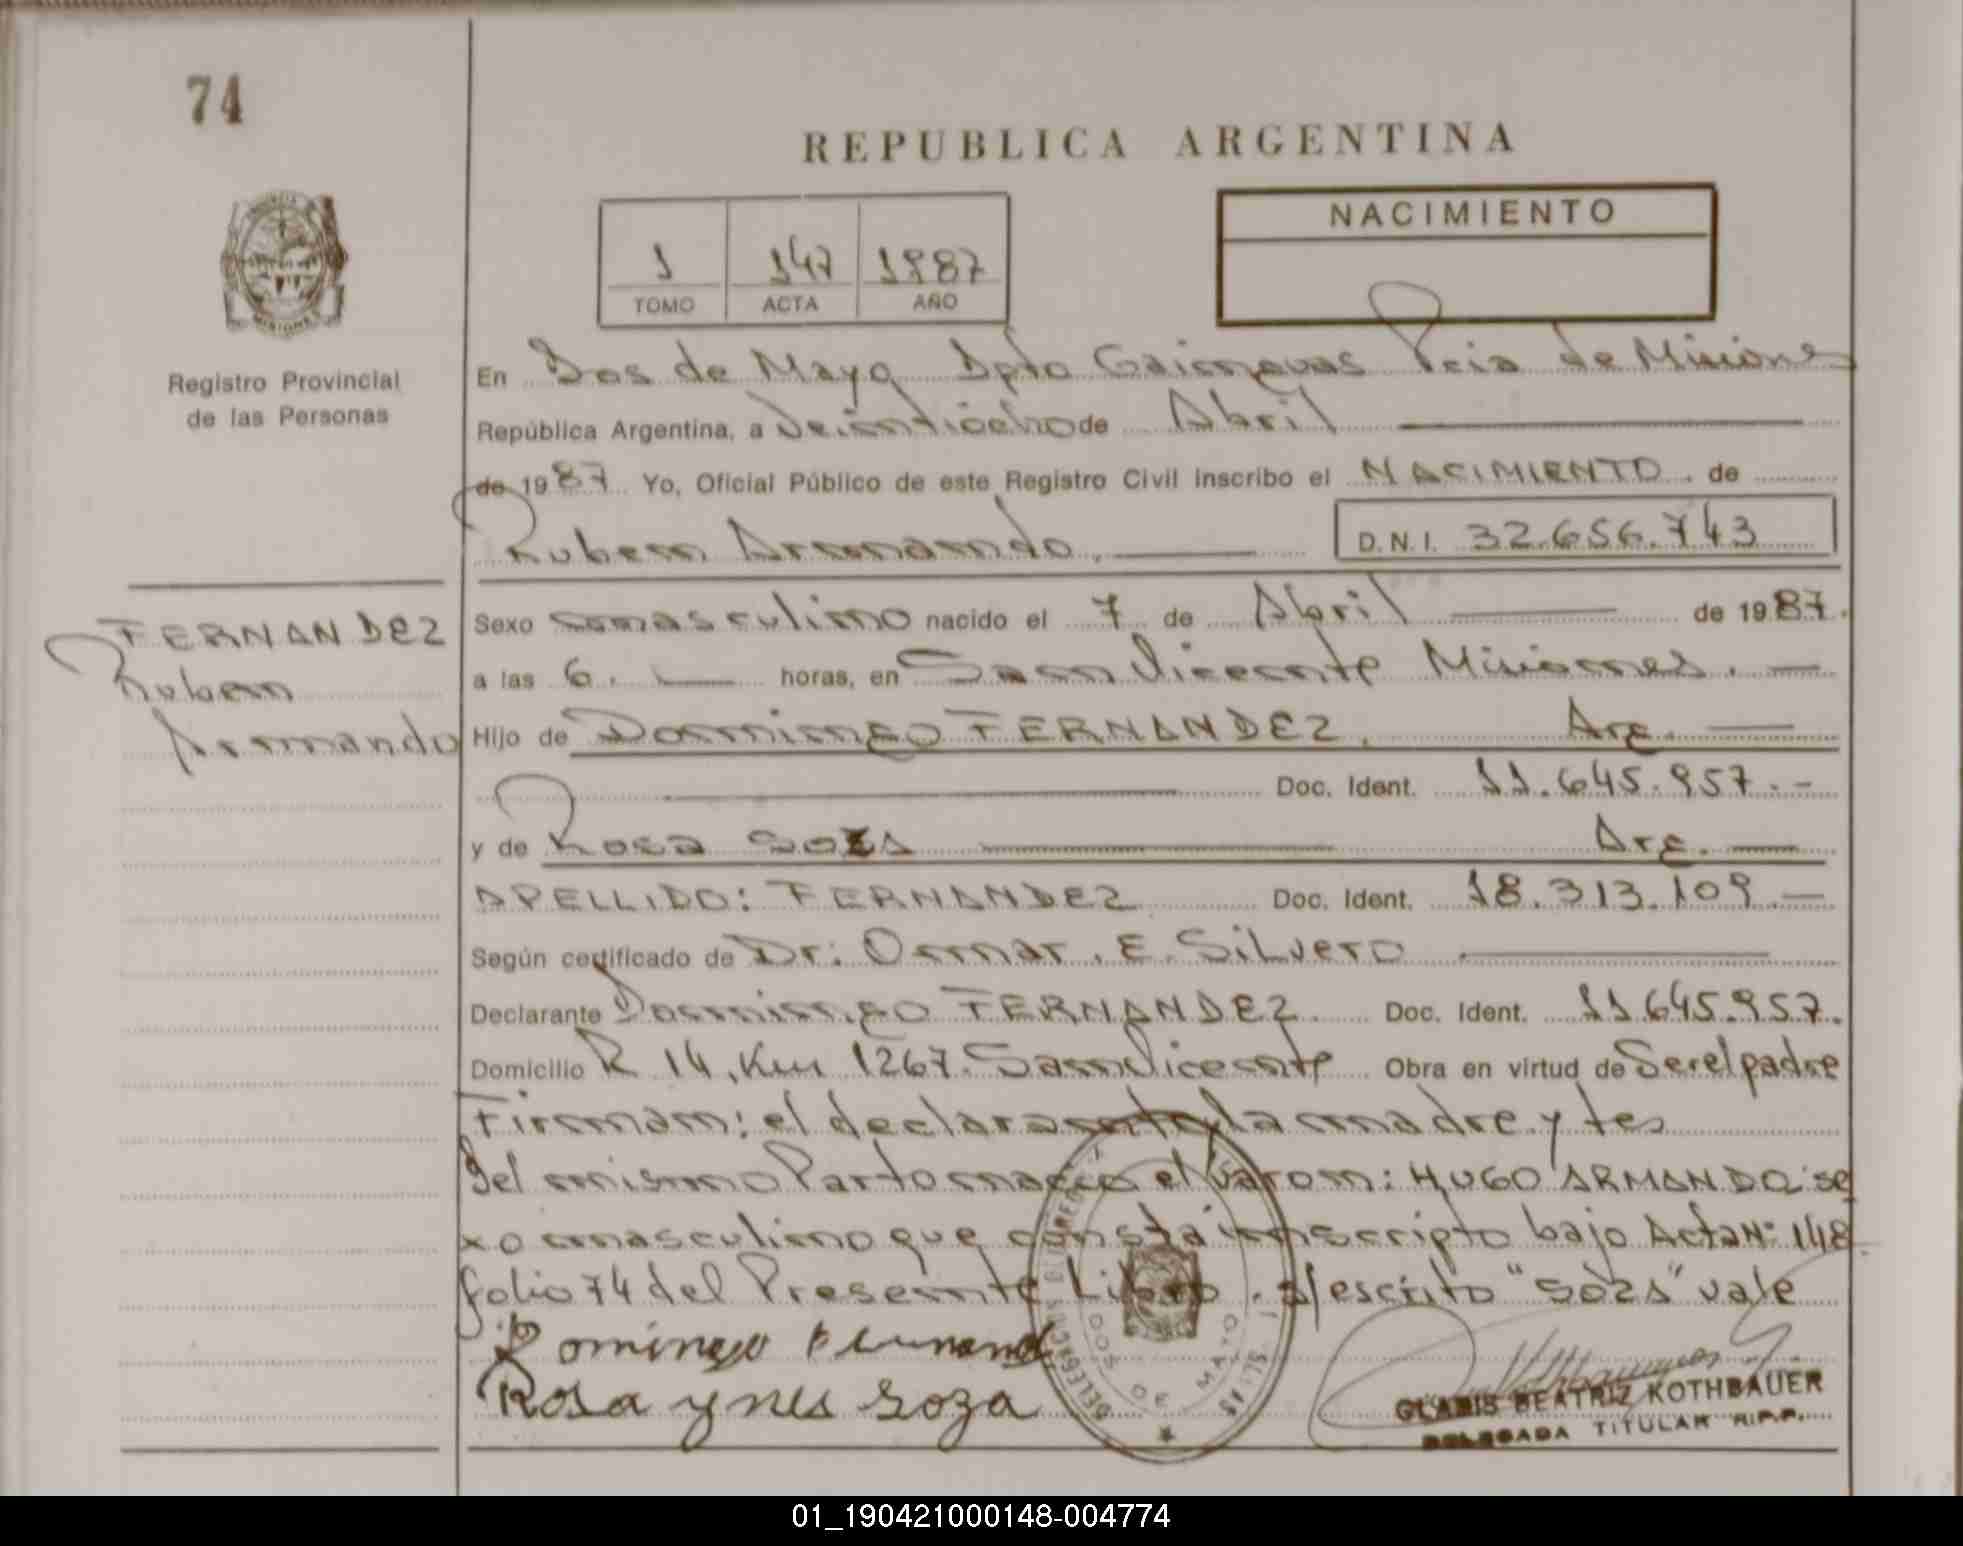 74
REPUBLICA ARGENTINA
NACIMIENTO
1 147 1987
TOMO ACTA AÑO
MISIONES
Registro Provincial
de las Personas
En Dos de Mayo Dpto Cainguas Pcia de Misiones
República Argentina, a Veintiocho de Abril
de 1987 Yo, Oficial Público de este Registro Civil inscribo el NACIMIENTO de
Ruben Armando. D.N.I. 32.656.743
FERNANDEZ
Ruben
Armando
Sexo masculino nacido el 7 de Abril de 1987.
a las 6. horas, en San Vicente Misiones.
Hijo de Domingo FERNANDEZ. Arg.
Doc. Ident. 11.645.957.-
y de Rosa SOZA Arg.
APELLIDO: FERNANDEZ Doc. Ident. 18.313.109.-
Según certificado de Dr: Omar. E. Silvero
Declarante Domingo FERNANDEZ. Doc. Ident. 11645.957.
Domicilio R 14, Km 1267. San Vicente Obra en virtud de Ser el padre
Firman: el declarante y la madre y tes
Del mismo Parto nacio el Varon: HUGO ARMANDO se
xo masculino que consta inscripto bajo Acta Nº 148
folio 74 del Presente Libro. s/escrito "SOZA" vale
Domingo Fernand
Rosa ynes soza
DOS DE MAYO
GLADIS BEATRIZ KOTHBAUER
DELEGADA TITULAR R.P.P.
01_190421000148-004774